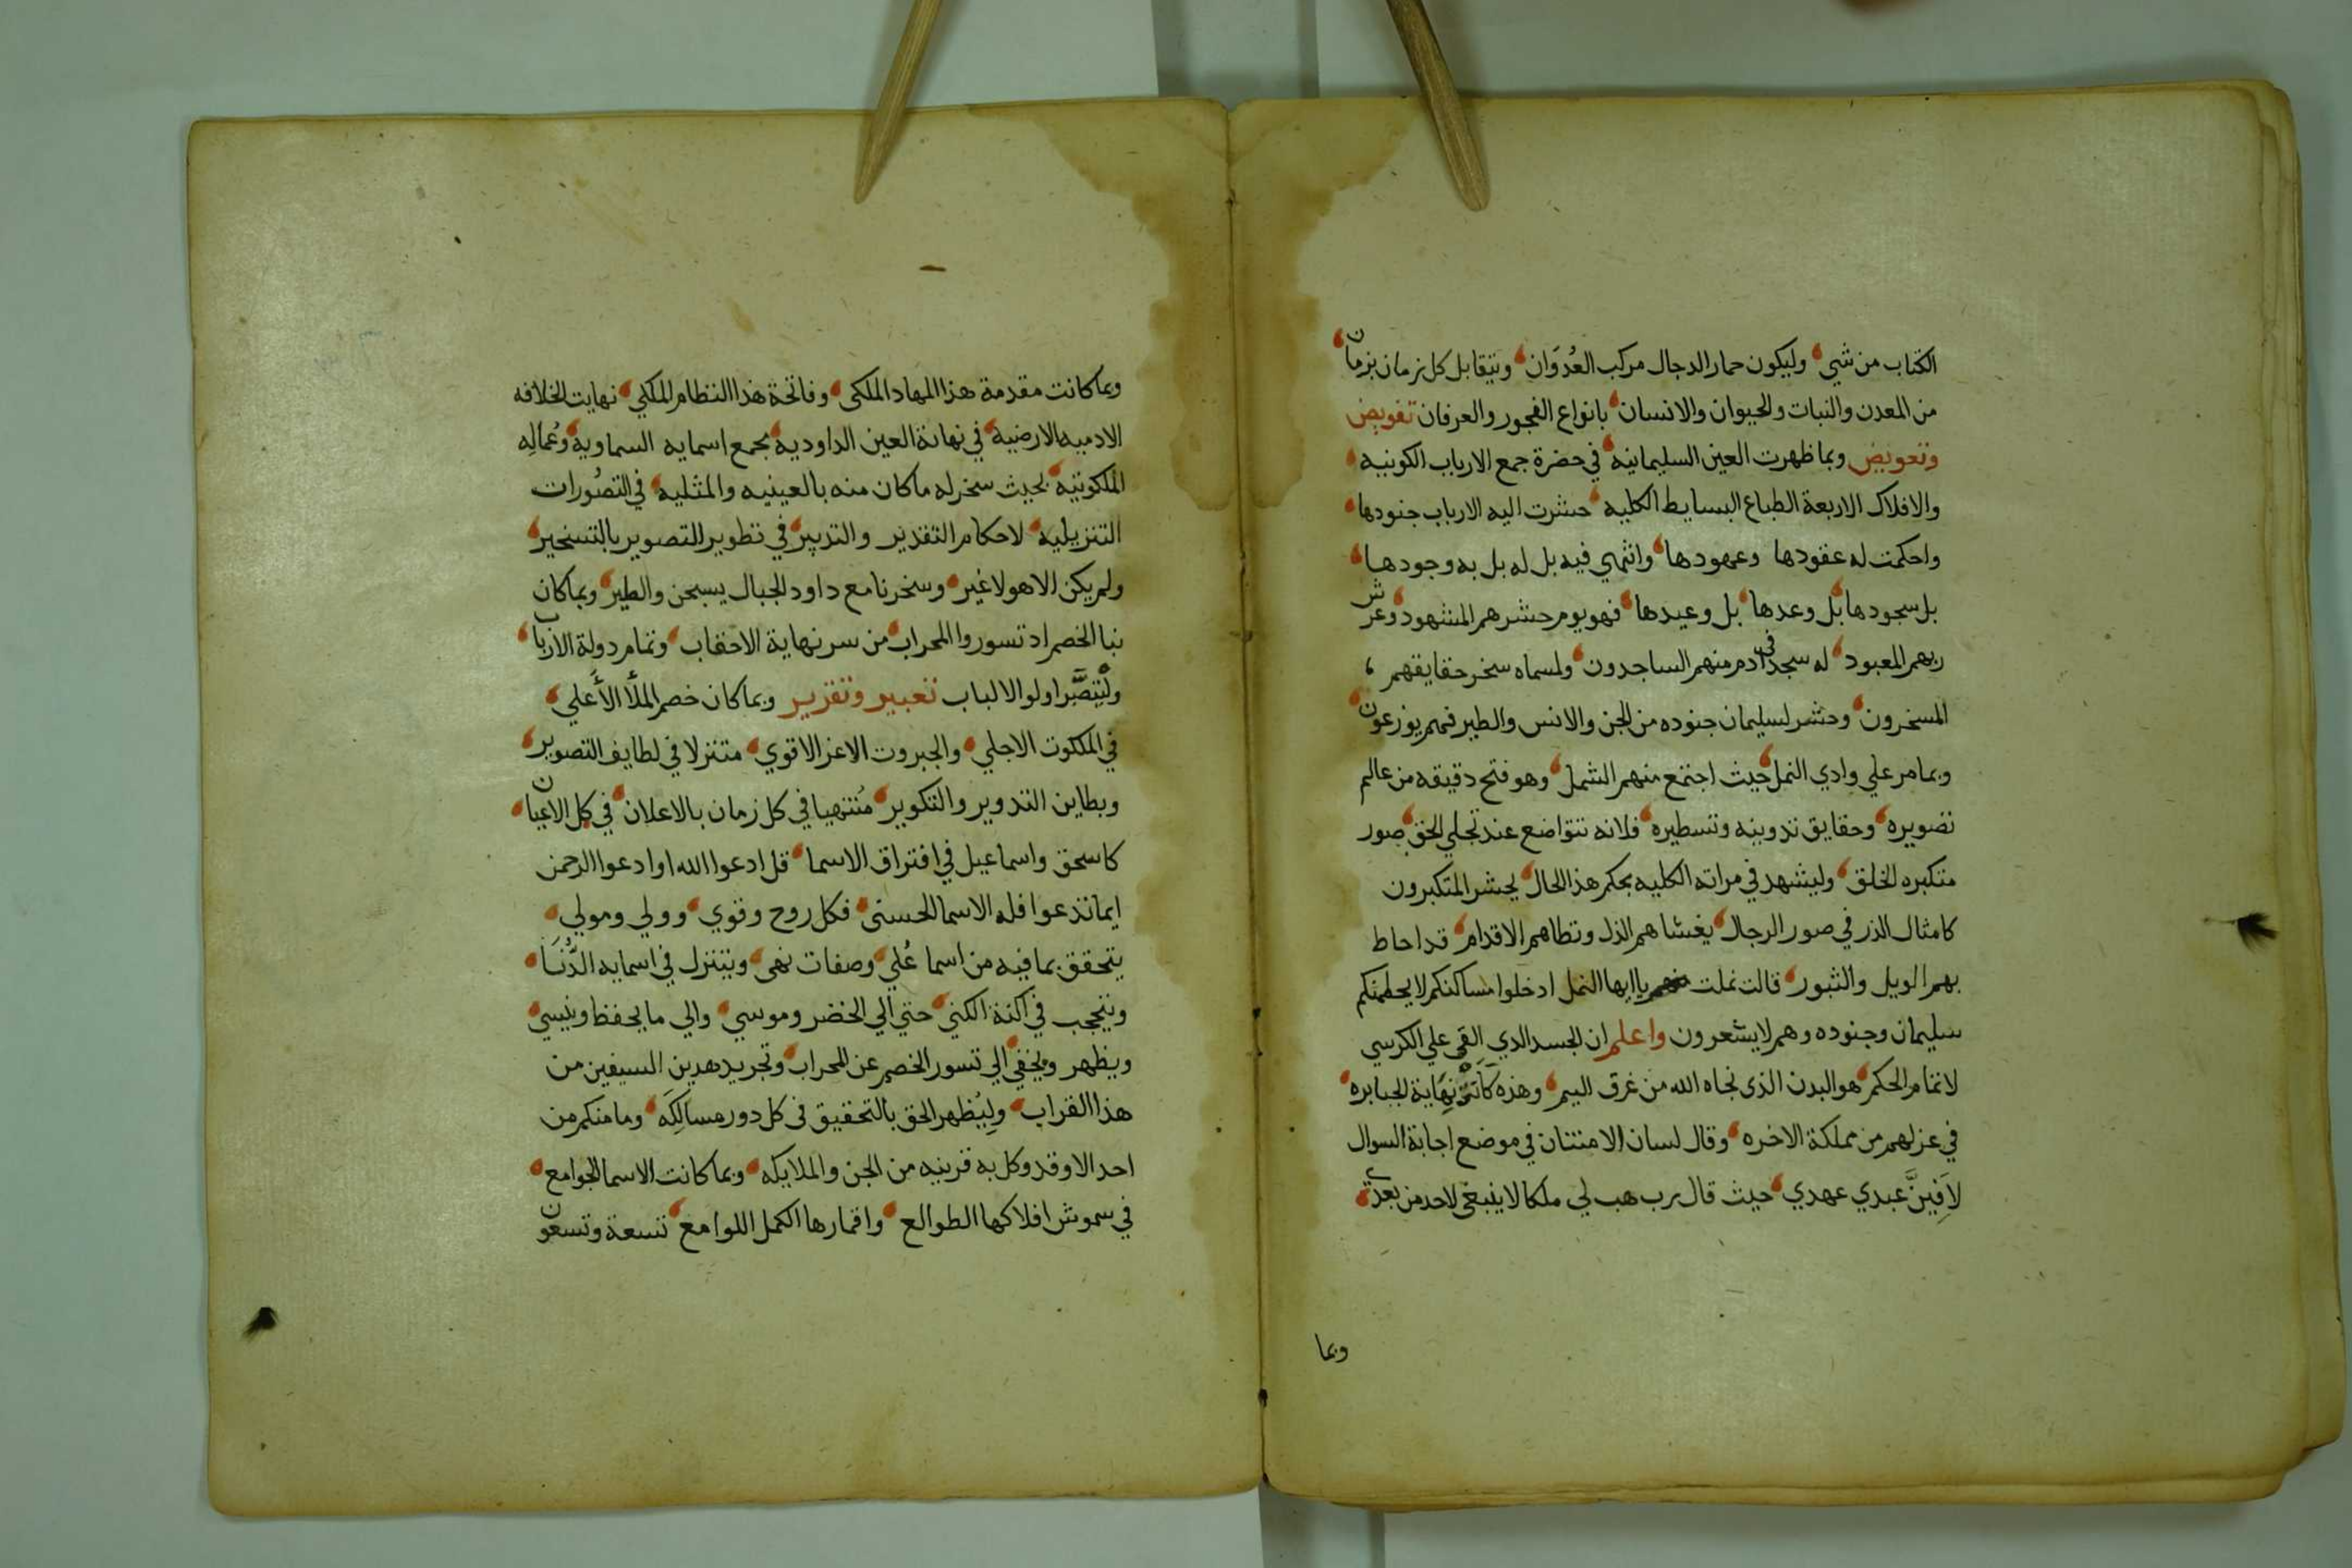 الكتاب من شي وليكون حمار الدجال مركب العُدوَان ويتقابل كل زمان بزمان
من المعدن والنبات والحيوان والانسان بانواع الفجور والعرفان تفويض
وتعويض وبما ظهرت العين السليمانيه في حضرة جمع الارباب الكونيه
والافلاك الاربعة الطباع البسايط الكليه حشرت اليه الارباب جنودها
واحكمت له عقودها وعهودها وانتهي فيه بل له بل به وجودها
بل سجودها بل وعدها بل وعيدها فهو يوم حشرهم المشهود وعرش
ربهم المعبود له سجد في ادم منهم الساجدون ولمسماه سخر حقايقهم
المسخرون وحشر لسليمان جنوده من الجن والانس والطير فهم يوزعون
وبما مر علي وادي النمل حيث اجتمع منهم الشمل وهو فتح دقيقه من عالم
تصويره وحقايق تدوينه وتسطيره فلانه تتواضع عند تجلي الحق صور
متكبره الخلق وليشهد في مراته الكليه بحكم هذا الحال يحشر المتكبرون
كامثال الذر في صور الرجال يغشاهم الذل وتطاهم الاقدام قد احاط
بهم الويل والثبور قالت نملت يا ايها النمل ادخلوا مساكنكم لا يحطمنكم
سليمان وجنوده وهم لا يشعرون واعلم ان الجسد الدي القى علي الكرسي
لاتمام الحكم هو البدن الذى نجاه الله من غرق اليم وهذه كانت نهاية الجبابره
في عزلهم من مملكة الاخره وقال لسان الامتنان في موضع اجابة السوال
لاَفِينَّ عبدي عهدي حيث قال رب هب لي ملكا لا ينبغى لاحد من بعدي
وبما
وبما كانت مقدمة هذا المهاد الملكى وفاتحة هذا النظام الملكي نهايت الخلافه
الادميه الارضية في نهاية العين الداوديه بجمع اسمايه السماويه وعُمالِه
الملكوتيه بحيث سخر له ما كان منه بالعينيه والمثليه في التصُورات
التنزيليه لاحكام التقدير والتدبير في تطوير التصوير بالتسخير
ولم يكن الا هو لا غير وسخرنا مع داود الجبال يسبحن والطير وبما كان
نبا الخصم اد تسوروا المحراب من سر نهاية الاحقاب وتمام دولة الارباب
وليتبصَّر اولوا الالباب تعبير وتقرير وبما كان خصم الملأ الأعلي
في الملكوت الاجلي والجبروت الاعز الاقوي متنزلا في لطايف التصوير
وبطاين التدوير والتكوير مُنتهيا في كل زمان بالاعلان في كل الاعيان
كاسحق واسماعيل في افتراق الاسما قل ادعوا الله او ادعوا الرحمن
ايما تدعوا فله الاسما الحسنى فكل روح وقوي وولي ومولي
يتحقق بما فيه من اسما عُلي وصفات نهى ويتنزل في اسمايه الدُّنَيا
ويتحجب في اكنة الكني حتي الي الخضر وموسي والي ما يحفظ وينسي
ويظهر ويخفي الي تسور الخصم عن المحراب وتجريد هدين السيفين من
هذا القراب ولِيُظهر الحق بالتحقيق فى كل دور مسالِكَه وما منكم من
احد الا وقد وكل به قرينه من الجن والملايكه وبما كانت الاسما الجوامع
في سموش افلاكها الطوالع واقمارها الكمل اللوامع تسعة وتسعون